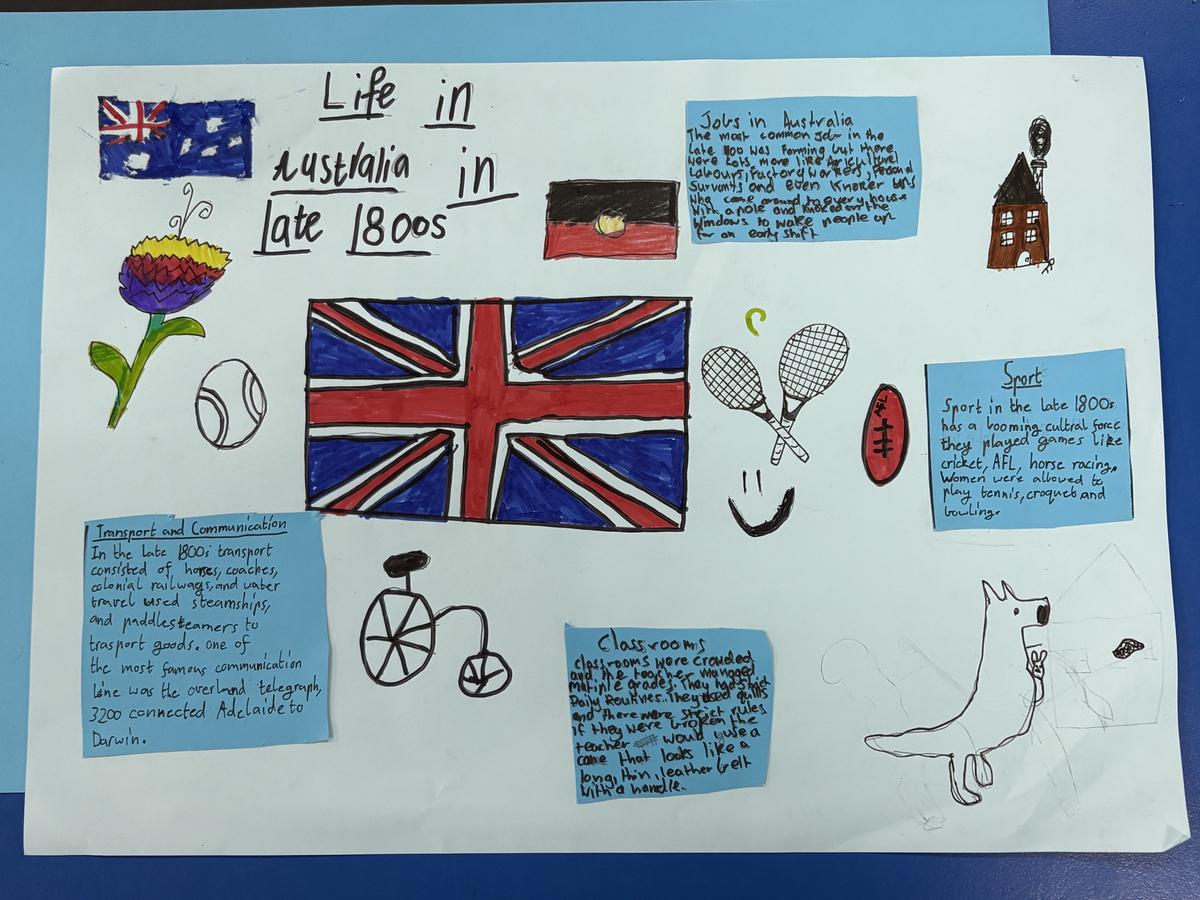 Life in
Australia in
late 1800s
Jobs in Australia
The most common Job in the
late 1100 was Farming but there
were Lots more like Agriculture
Labours, Factory workers, Personal
Survants and even Knoker UPS
Who came around to every house
With a pole and Knoked on the
Windows to wake people up
for an early shift
AFL
Sport
Sport in the late 1800s
has a booming cultral force
they played games like
cricket, AFL, horse racing.
Women were allowed to
play tennis, croquet and
bowling.
Transport and Communication
In the late 1800s transport
consisted of horses, coaches,
colonial railways, and water
travel used steamships,
and paddlesteamers to
trasport goods. one of
the most famous communication
line was the overland telegraph,
3200 connected Adelaide to
Darwin.
Classrooms
classrooms were crouded
and the teacher managed
multiple grades. They had strict
Daily Routines. They used quills
and there were strict rules
if they were broken the
teacher would use a
cane that looks like a
long, thin, leather belt
with a handle.